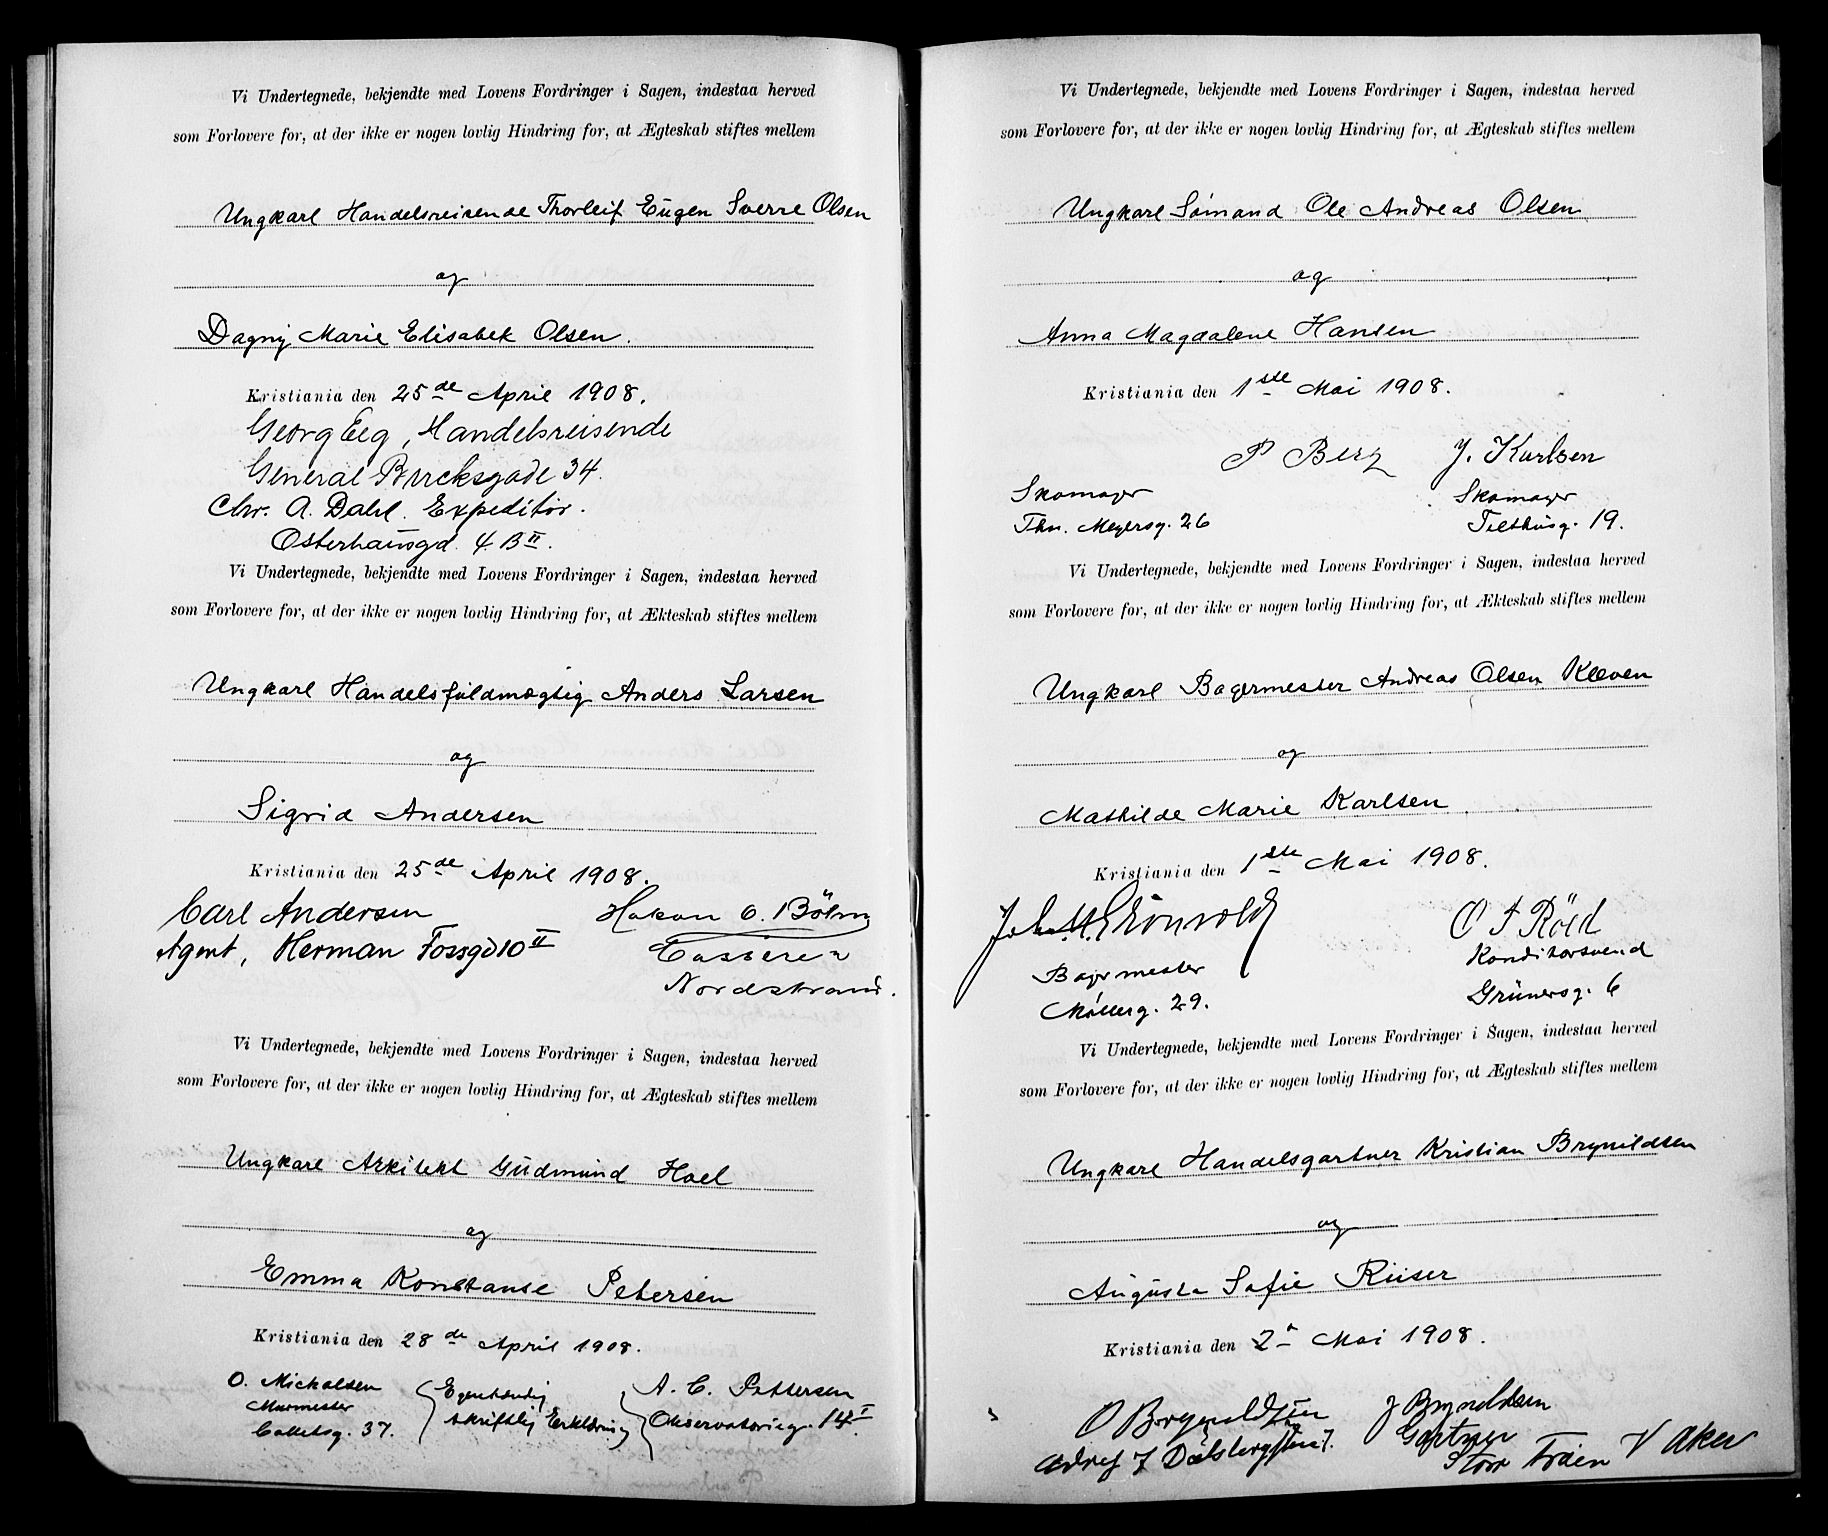 Vi Undertegnede, bekjendte med Lovens Fordringer i Sagen, indestaa herved
som Forlovere for, at der ikke er nogen lovlig Hindring for, at Ægteskab stiftes mellem
Ungkarl Handelsreisende Thorleif Eugen Sverre Olsen
og
Dagny Marie Elisabek Olsen.
Kristiania den 25de April 1908.
Georg Eeg, Handelsreisende
General Bircksgade 34.
Chr. A. Dahl. Expeditør.
Osterhausgd. 4 B II.
Vi Undertegnede, bekjendte med Lovens Fordringer i Sagen, indestaa herved
som Forlovere for, at der ikke er nogen lovlig Hindring for, at Ækteskab stiftes mellem
Ungkarl Handelsfuldmægtig Anders Larsen
og
Sigrid Andersen
Kristiania den 25de April 1908.
Carl Andersen Hakon C. Böhm
Agent, Herman Fossgd 10 II Casserer
Nordstrand.
Vi Undertegnede, bekjendte med Lovens Fordringer i Sagen, indestaa herved
som Forlovere for, at der ikke er nogen lovlig Hindring for, at Ægteskab stiftes mellem
Ungkarl Arkitekt Gudmund Hoel
og
Emma Konstanse Petersen
Kristiania den 28de April 1908.
O. Michalsen Egenhændig A. C. Pettersen
Murmester skriftlig Erklæring Observatorieg. 14 I
Colletsg. 37.
Vi Undertegnede, bekjendte med Lovens Fordringer i Sagen, indestaa herved
som Forlovere for, at der ikke er nogen lovlig Hindring for, at Ægteskab stiftes mellem
Ungkarl Sømand Ole Andreas Olsen
og
Anna Magdalene Hansen
Kristiania den 1ste Mai 1908.
P Berg J. Karlsen
Skomager Skomager
Thv. Meyersg. 26 Tilthusg. 19.
Vi Undertegnede, bekjendte med Lovens Fordringer i Sagen, indestaa herved
som Forlovere for, at der ikke er nogen lovlig Hindring for, at Ækteskab stiftes mellem
Ungkarl Bagermester Andreas Olsen Kleven
og
Mathilde Marie Karlsen
Kristiania den 1ste Mai 1908.
Joh. M. Grönvold O I Röed
Bagermester Konditorsvend
Møllerg. 29. Grünersg. 6
Vi Undertegnede, bekjendte med Lovens Fordringer i Sagen, indestaa herved
som Forlovere for, at der ikke er nogen lovlig Hindring for, at Ægteskab stiftes mellem
Ungkarl Handelsgartner Kristian Brynildsen
og
Augusta Sofie Riiser
Kristiania den 2. Mai 1908.
O Brynildsen J Brynildsen
Gartner
Store Frøen V Aker